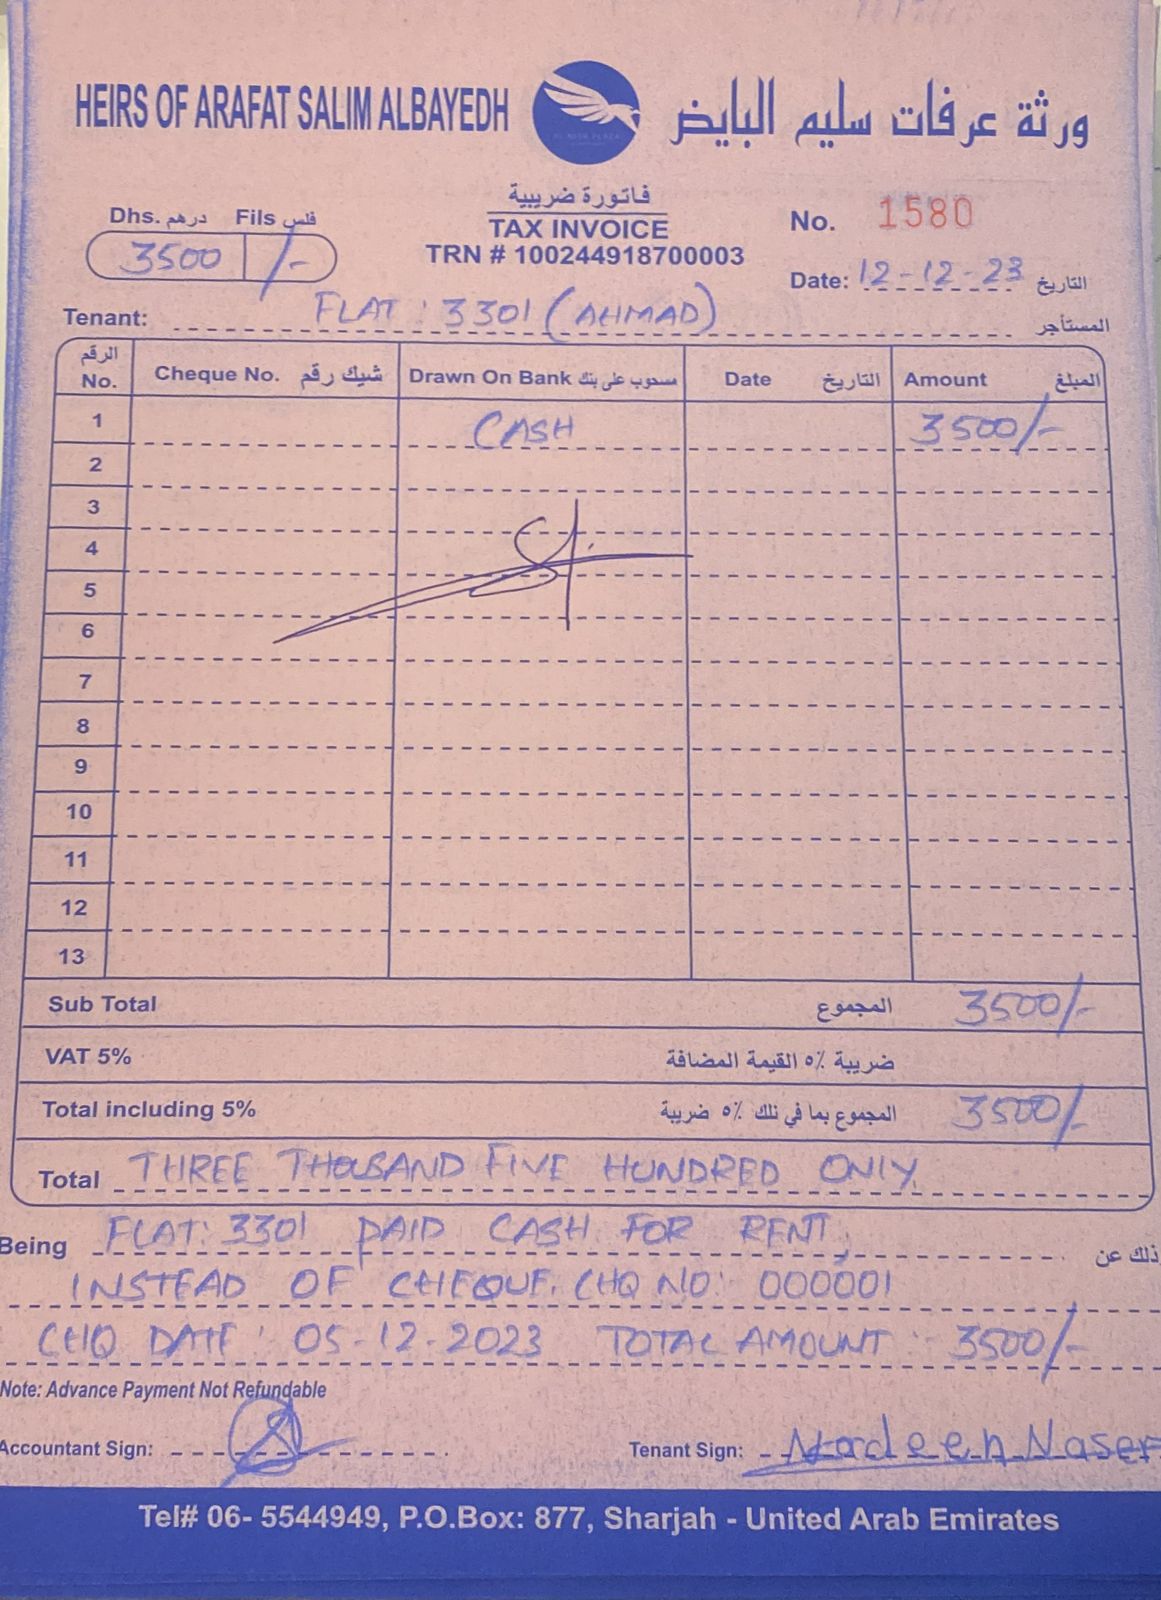 HEIRS OF ARAFAT SALIM ALBAYEDH ورثة عرفات سليم البايض
فاتورة ضريبية
TAX INVOICE
TRN # 100244918700003
Dhs. درهم Fils فلس
3500 /-
No. 1580
Date: 12-12-23 التاريخ
Tenant: FLAT : 3301 (AHMAD) المستأجر
الرقم No. Cheque No. شيك رقم Drawn On Bank مسحوب على بنك Date التاريخ Amount المبلغ
1 CASH 3500/-
2
3
4
5
6
7
8
9
10
11
12
13
Sub Total المجموع 3500/-
VAT 5% ضريبة ٥٪ القيمة المضافة
Total including 5% المجموع بما في ذلك ٥٪ ضريبة 3500/-
Total THREE THOUSAND FIVE HUNDRED ONLY.
Being FLAT: 3301 PAID CASH FOR RENT, ذلك عن
INSTEAD OF CHEQUE. CHQ NO: 000001
CHQ DATE: 05-12-2023 TOTAL AMOUNT: 3500/-
Note: Advance Payment Not Refundable
Accountant Sign: Tenant Sign: Nardeen Naser
Tel# 06- 5544949, P.O.Box: 877, Sharjah - United Arab Emirates